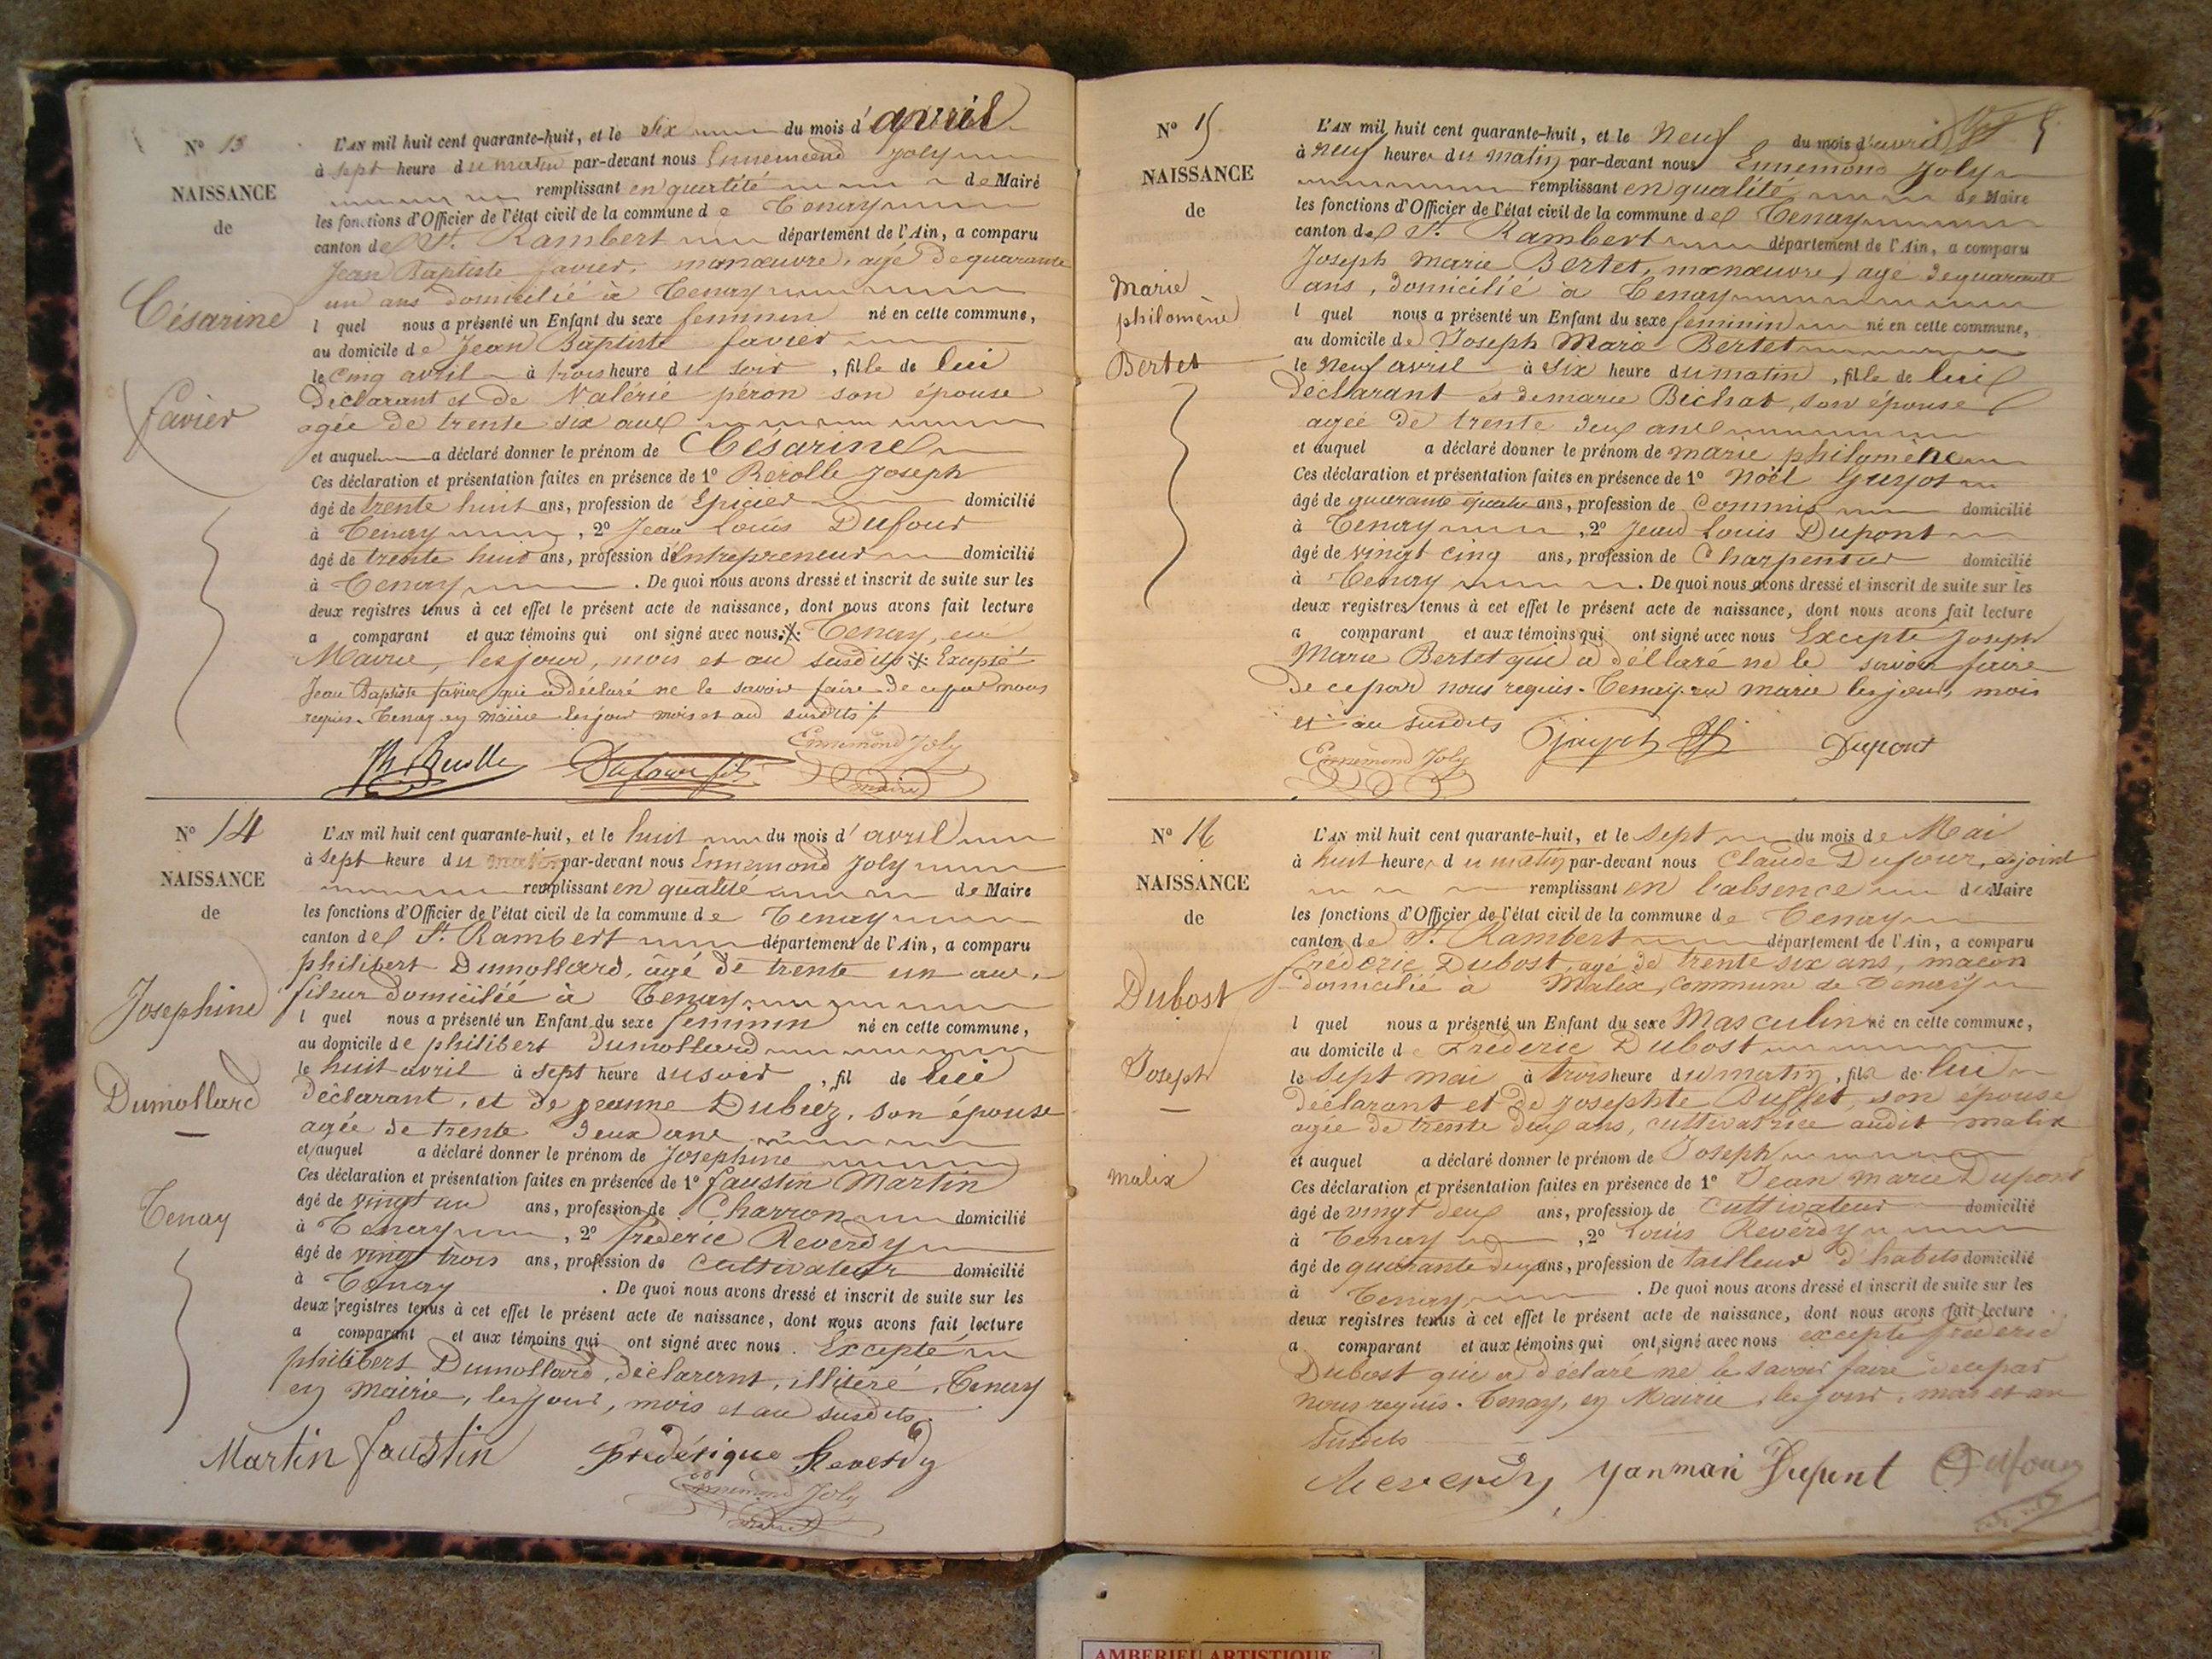 N° 13
NAISSANCE
de
Césarine
favier
L'AN mil huit cent quarante-huit, et le Six du mois d'avril
à sept heure du matin par-devant nous Ennemond Joly
remplissant en quartété de Maire
les fonctions d'Officier de l'état civil de la commune de Tenay
canton de St. Rambert département de l'Ain, a comparu
Jean Baptiste favier, manœuvre, agé de quarante
un ans domicilié à Tenay
l quel nous a présenté un Enfant du sexe feminin né en cette commune,
au domicile de Jean Baptiste favier
le cinq avril à trois heure du soir, fille de lui
Déclarant et de Valérie péron son épouse
agée de trente six ans
et auquel a déclaré donner le prénom de Césarine
Ces déclaration et présentation faites en présence de 1° Berolle Joseph
âgé de trente huit ans, profession de Epicier domicilié
à Tenay, 2° Jean Louis Dufour
âgé de trente huit ans, profession d'Entrepreneur domicilié
à Tenay. De quoi nous avons dressé et inscrit de suite sur les
deux registres tenus à cet effet le présent acte de naissance, dont nous avons fait lecture
a comparant et aux témoins qui ont signé avec nous. Tenay, en
Mairie, les jour, mois et an susdits Excepté
Jean Baptiste favier qui a déclaré ne le savoir faire de ce par nous
requis. Tenay en mairie les jour mois et an susdits
Dufour fils
Ennemond Joly
maire
N° 14
NAISSANCE
de
Josephine
Dumollard
Tenay
L'AN mil huit cent quarante-huit, et le huit du mois d'avril
à sept heure du matin par-devant nous Ennemond Joly
remplissant en qualité de Maire
les fonctions d'Officier de l'état civil de la commune de Tenay
canton de St. Rambert département de l'Ain, a comparu
philibert Dumollard, âgé de trente un ans,
fileur domicilié à Tenay
l quel nous a présenté un Enfant du sexe feminin né en cette commune,
au domicile de philibert Dumollard
le huit avril à sept heure du soir, fil de lui
Déclarant, et de jeanne Dubiez, son épouse
agée de trente deux ans
et auquel a déclaré donner le prénom de Josephine
Ces déclaration et présentation faites en présence de 1° faustin Martin
âgé de vingt un ans, profession de Charron domicilié
à Tenay, 2° frédéric Reverdy
âgé de vingt trois ans, profession de Cultivateur domicilié
à Tenay. De quoi nous avons dressé et inscrit de suite sur les
deux registres tenus à cet effet le présent acte de naissance, dont nous avons fait lecture
a comparant et aux témoins qui ont signé avec nous. Excepté
philibert Dumollard, déclarent, illitéré, Tenay
en Mairie, les jour, mois et an susdits.
Martin faustin frédérique Reverdy
Ennemond Joly
maire
N° 15
NAISSANCE
de
Marie
philomène
Bertet
L'AN mil huit cent quarante-huit, et le Neuf du mois d'avril
à neuf heures du matin par-devant nous Ennemond Joly
remplissant en qualité de Maire
les fonctions d'Officier de l'état civil de la commune de Tenay
canton de St. Rambert département de l'Ain, a comparu
Joseph Marie Bertet, manœuvre, age de quarante
ans, domicilié à Tenay
l quel nous a présenté un Enfant du sexe féminin né en cette commune,
au domicile de Joseph Marie Bertet
le Neuf avril à Six heure du matin, fille de lui
Déclarant et de marie Bichat, son épouse
agée de trente deux ans
et auquel a déclaré donner le prénom de marie philomène
Ces déclaration et présentation faites en présence de 1° Noël Guyot
âgé de quarante quatre ans, profession de Commis domicilié
à Tenay, 2° Jean Louis Dupont
âgé de vingt cinq ans, profession de Charpentier domicilié
à Tenay. De quoi nous avons dressé et inscrit de suite sur les
deux registres tenus à cet effet le présent acte de naissance, dont nous avons fait lecture
a comparant et aux témoins qui ont signé avec nous Excepté Joseph
Marie Bertet qui a déclaré ne le savoir faire
de ce par nous requis. Tenay en marie les jour, mois
et an susdits
Ennemond Joly
Dupont
N° 16
NAISSANCE
de
Dubost
Joseph
malix
L'AN mil huit cent quarante-huit, et le Sept du mois de Mai
à huit heures du matin par-devant nous Claude Dufour, adjoint
remplissant en l'absence du Maire
les fonctions d'Officier de l'état civil de la commune de Tenay
canton de St. Rambert département de l'Ain, a comparu
fréderic Dubost, agé de trente six ans, macon
domicilié à Malix, Commune de Tenay
l quel nous a présenté un Enfant du sexe Masculin né en cette commune,
au domicile de Fréderic Dubost
le Sept mai à trois heure du matin, fils de lui
déclarant et de josephte Buffet, son épouse
agée de trente deux ans, cultivatrice audit malix
et auquel a déclaré donner le prénom de Joseph
Ces déclaration et présentation faites en présence de 1° Jean marie Dupont
âgé de vingt deux ans, profession de Cultivateur domicilié
à Tenay, 2° Louis Reverdy
âgé de quarante deux ans, profession de tailleur d'habits domicilié
à Tenay. De quoi nous avons dressé et inscrit de suite sur les
deux registres tenus à cet effet le présent acte de naissance, dont nous avons fait lecture
a comparant et aux témoins qui ont signé avec nous excepté fréderic
Dubost qui a déclaré ne le savoir faire de ce par
nous requis. Tenay, en Mairie, les jour, mois et an
susdits
Reverdy yanmari Dupont Dufour
AMBERIEU ARTISTIQUE